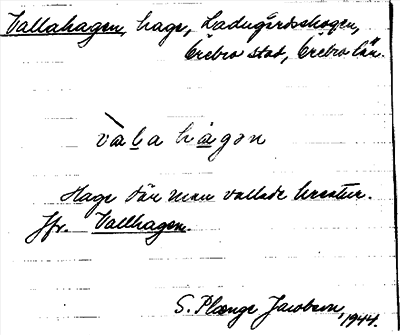 Vallahagen, hage, Ladugårdsskogen,
Örebro stad, Örebro län.
vàla hàgən
Hage där man vallade kreatur.
Jfr. Vallhagen.
S. Plænge Jacobson, 1944.